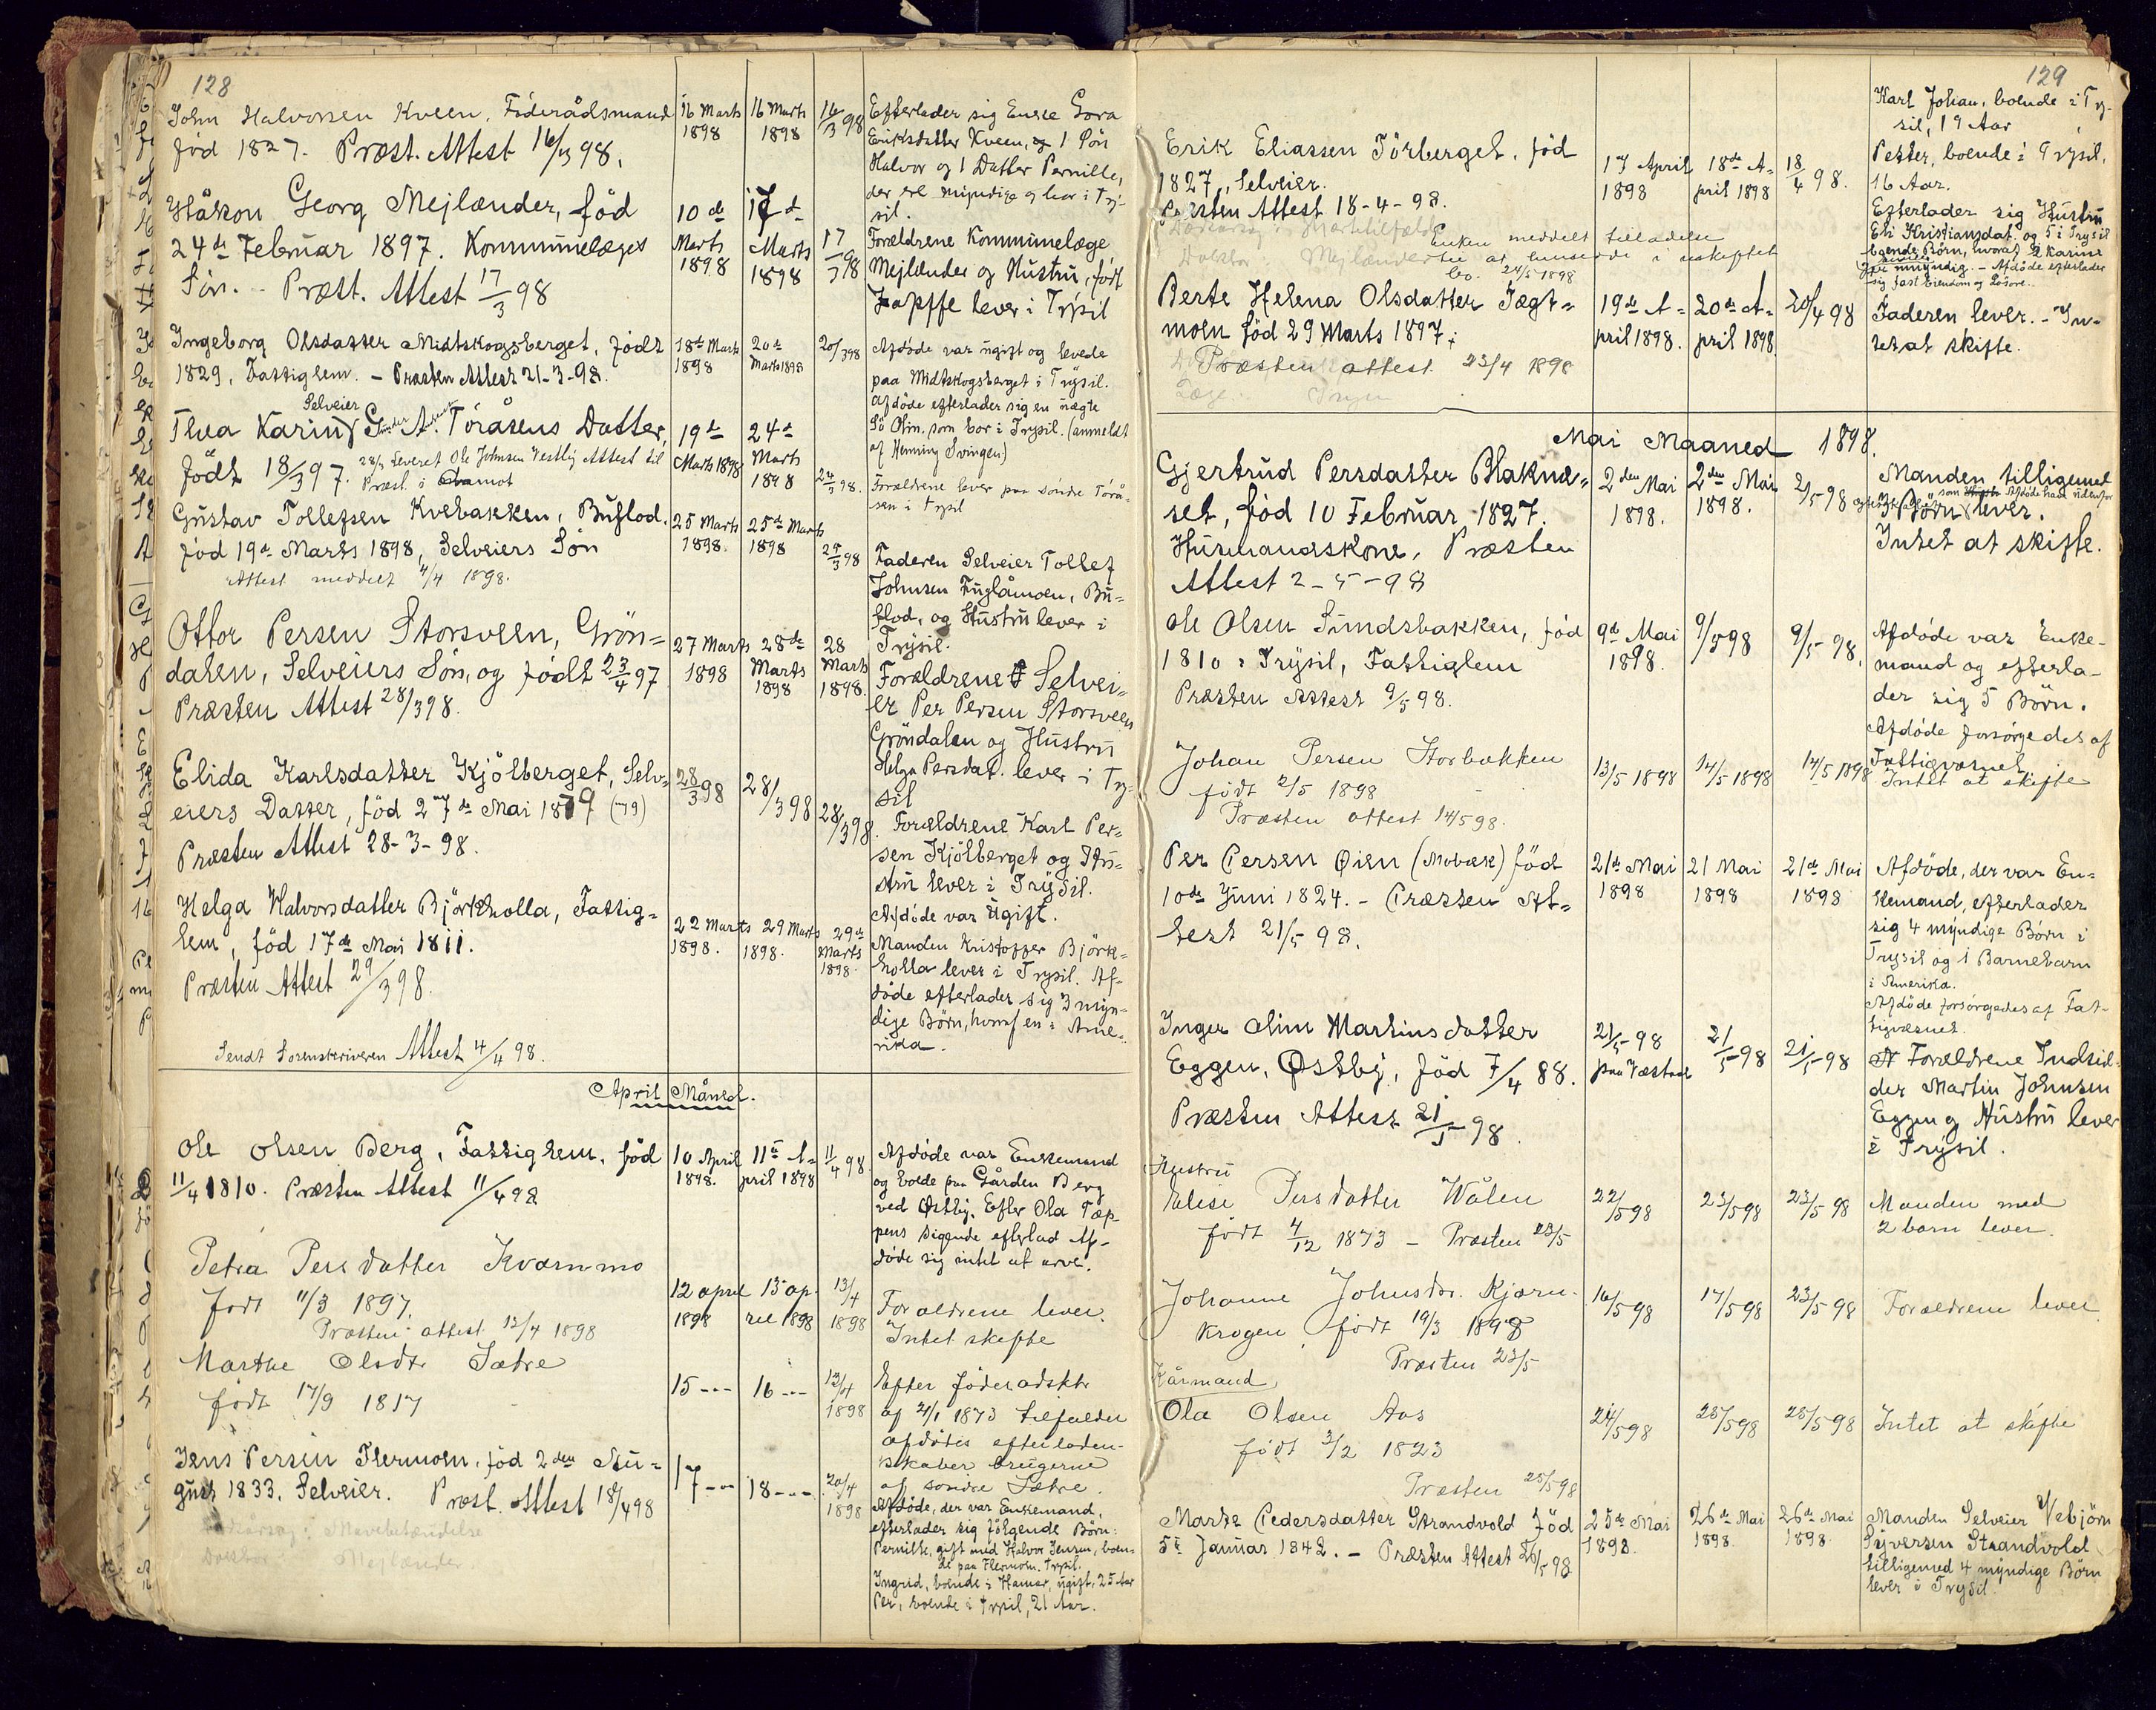 128
John Halvorsen Kveen, Föderådsmand
född 1827. Præst. Attest 16/3 98.
16 Marts
1898
16 Marts
1898
16/3 98
Efterlader sig Enke Gora
Eriksdatter Kveen, og 1 Sön
Halvor og 1 Datter Pernille,
der ere myndige og bor i Try-
sil.
Håkon Georg Mejlænder, föd
24de Februar 1897. Kommunelæges
Sön. - Præst. Attest 17/3 98
10de
Marts
1898
17de
Marts
1898
17/3 98
Forældrene Kommunelæge
Mejlænder og Hustru, født
Zapffe lever i Trysil
Ingeborg Olsdatter Midtskogsberget, född
1829, Fattiglem. - Præsten Attest 21-3-98.
18de Marts
1898
20de
Marts 1898
20/3 98
Afdöde var ugift og levede
paa Midtskogsberget i Trysil.
Afdöde efterlader sig en uægte
Sö Olin. som bor i Trysil. (anmeldt
af Henning Svingen)
Selveier
Thea Karin G. A. Töråsens Datter,
födt 18/3 97. 28/3 Leveret Ole Johnsen Vestby Attest til
Præst. i Aamot
19de
Marts 1898
24de
Marts
1898
24/3 98.
Forældrene lever paa söndre Törå-
sen i Trysil
Gustav Tollefsen Kvebakken, Buflod.
föd 19de Marts 1898, Selveiers Sön
Attest meddelt 4/4 1898.
25 Marts
1898.
25de Marts
1898
25/3 98
Faderen Selveier Tollef
Johnsen Fuglåmoen, Bu-
flod, og Hustru lever i
Trysil.
Ottor Persen Storsveen, Grön-
dalen, Selveiers Sön, og födt 23/4 97
Præsten Attest 28/3 98.
27 Marts
1898
28de
Marts
1898
28
Marts
1898.
Forældrene Selvei-
er Per Persen Storsveen
Gröndalen og Hustru
Helga Persdat. lever i Try-
sil
Elida Karlsdatter Kjölberget, Selv-
eiers Datter, föd 27de Mai 1879 (79)
Præsten Attest 28-3-98.
28/3 98
28/3 98
28/3 98.
Forældrene Karl Per-
sen Kjölberget og Hu-
stru lever i Trysil.
Afdöde var ugift.
Helga Halvorsdatter Björkholla, Fattig-
lem, föd 17de Mai 1811.
Præsten Attest 29/3 98.
22 Marts
1898.
29 Marts
1898.
29de
Marts
1898.
Manden Kristoffer Björk-
holla lever i Trysil. Af-
döde efterlader sig 3 myn-
dige Börn, hvoraf en i Ame-
rika.
Sendt Sorenskriveren Attest 4/4 98.
April Måned.
Ole Olsen Berg, Fattiglem, föd
11/4 1810. Præsten Attest 11/4 98
10 April
1898.
11te A-
pril 1898
11/4 98
Afdöde var Enkemand
og boede paa Gården Berg
ved Østby. Efter Ola Tæp-
pens sigende efterlod Af-
döde sig intet at arve.
Petra Persdatter Kværnmo
født 11/3 1897.
Præsten attest 12/4 1898
12 april
1898
13 ap-
ril 1898
13/4
1898
Forældrene lever.
Intet skifte
Marthe Olsdtr Sætre
født 17/9 1817
15 - - -
16 - - -
13/4
1898
Efter föderådsktr.
af 21/1 1873 tilfalder
afdödes efterladen-
skaber brugerne
af sondre Sætre.
Jens Persen Flermoen, föd 2den Au-
gust 1833. Selveier. Præst. Attest 18/4 98
Dödsårsag: Mavebetændelse
Doktor Mejlænder
17 - - -
18 - - -
20/4
1898
Afdöde, der var Enkemand,
efterlader sig fölgende Börn:
Pernille, gift med Halvor Jensen, boen-
de paa Flermoen. Trysil.
Ingrid, boende i Hamar, ugift, 25 Aar
Per, boende i Trysil, 21 Aar.
129
Karl Johan, boende i Try-
sil, 19 Aar
Petter, boende i Trysil,
16 Aar.
Erik Eliassen Törberget, föd
1827, Selveier.
Præsten Attest 18-4-98.
Enken meddelt tilladelse
Doktor: Mejlænder til at hensidde i uskiftet
bo. 24/5 1898
17 April
1898
18de A-
pril 1898
18/4 98.
Efterlader sig Hustru
Eli Kristiansdat. og 5 i Trysil
boende Börn, hvoraf Karine
myndig. - Afdöde efterlader
sig fast Eiendom og Lösöre.
Berte Helena Olsdatter Jægt-
moen föd 29 Marts 1897.
Præsten attest 23/4 1898
19de A-
pril 1898.
20de A-
pril 1898
20/4 98
Faderen lever. - In-
tet at skifte.
Mai Maaned 1898.
Gjertrud Persdatter Blaknæ-
set, föd 10 Februar 1827.
Husmandskone. Præsten
Attest 2-5-98
2den Mai
1898.
2den Mai
1898.
2/5 98
Manden tilligemed
3 Börn lever.
Intet at skifte.
Ole Olsen Sundsbakken, föd
1810 i Trysil, Fattiglem
Præsten Attest 9/5 98.
9de Mai
1898.
9/5 98
9/5 98.
Afdöde var Enke-
mand og efterla-
der sig 5 Börn.
Afdöde forsörgedes af
Fattigvæsnet
Johan Persen Storbakken
født 2/5 1898
Præsten attest 14/5 98.
13/5 1898
14/5 1898
14/5 1898
Intet at skifte
Per Persen Øien (Mobæk) föd
10de Juni 1824. - Præsten At-
test 21/5 98.
21de Mai
1898
21 Mai
1898
21de Mai
1898
Afdöde, der var En-
kemand, efterlader
sig 4 myndige Börn i
Trysil og 1 Barnebarn
i Amerika.
Afdöde forsörgedes af Fat-
tigvæsnet.
Inger Oline Martinsdatter
Eggen, Østby, föd 7/4 88.
Præsten Attest 21/5 98.
21/5 98
21/5 98
21/5 98
Forældrene Indsid-
der Martin Johnsen
Eggen og Hustru lever
i Trysil.
Hustru
Elese Persdatter Wålen
født 4/12 1873 - Præsten 23/5
22/5 98
23/5 98
23/5 98
Manden med
2 barn lever.
Johanne Johnsdr. Kjærn-
krogen, født 19/3 1898
Præsten 23/5
16/5 98
17/5 98
23/5 98
Forældrene lever
Kårmand
Ola Olsen Aas
født 3/2 1823
Præsten 25/5 98
24/5 98
25/5 98
25/5 98
Intet at skifte
Marte Pedersdatter Strandvold föd
5te Januar 1842. - Præsten Attest 26/5 98
25de Mai
1898.
26de Mai
1898.
26de Mai
1898.
Manden Selveier Vebjörn
Syversen Strandvold
tilligemed 4 myndige Börn
lever i Trysil.